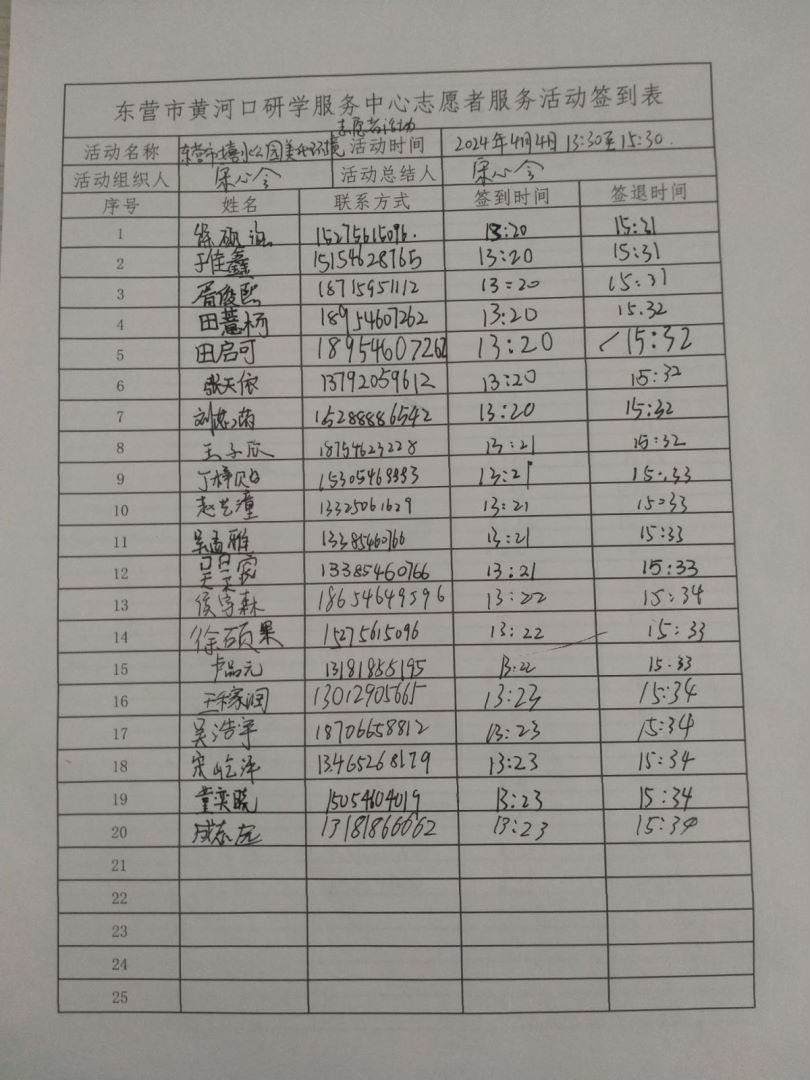 东营市黄河口研学服务中心志愿者服务活动签到表
志愿者活动
活动名称 东营市 水公园美化环境 活动时间 2024年4月4日 13:30至15:30.
活动组织人 宋心会 活动总结人 宋心会
序号 姓名 联系方式 签到时间 签退时间
1 徐砚 15275615096. 13:20 15:31
2 于佳鑫 15154628765 13:20 15:31
3 胥俊熙 18715951112 13:20 15:31
4 田薏杨 18954607262 13:20 15.32
5 田启可 18954607262 13:20 15:32
6 张天依 13792059612 13:20 15:32
7 刘 15288886542 13:20 15:32
8 王子辰 18754623228 13:21 15:32
9 丁梓 15305469993 13:21 15:33
10 赵艺潼 13325061629 13:21 15:33
11 吴孟雅 13385460766 13:21 15:33
12 吴 13385460766 13:21 15:33
13 侯宇森 18654649596 13:22 15:34
14 徐硕果 15275615096 13:22 15:33
15 卢品元 13181858195 13:22 15.33
16 王稼润 13012905665 13:23 15:34
17 吴浩宇 18706658812 13:23 15:34
18 宋屹泽 13465268179 13:23 15:34
19 董奕晓 15054604019 13:23 15:34
20 成志远 13181866062 13:23 15:34
21
22
23
24
25